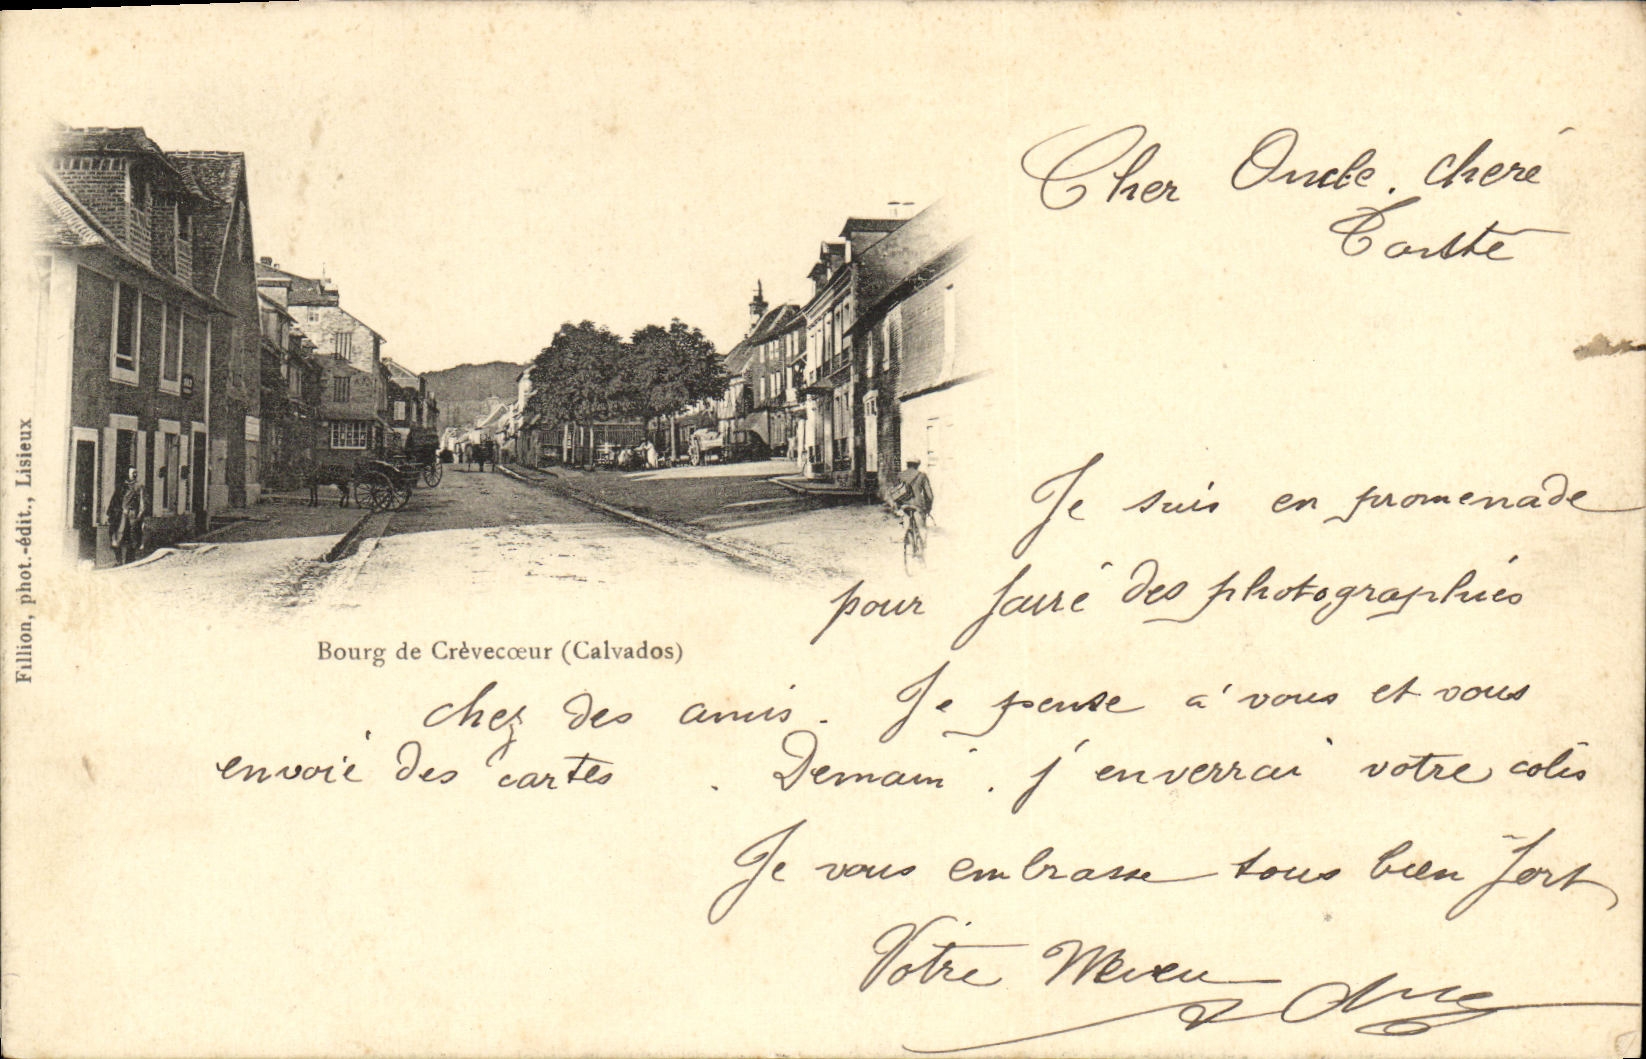 Cher Oncle, chere
Tante
Je suis en promenade
pour faire des photographies
Bourg de Crèvecœur (Calvados)
chez des amis. Je pense à vous et vous
envoie des cartes. Demain, j'enverrai votre colis
Je vous embrasse tous bien fort
Votre Neveu
Fillion, phot.-édit., Lisieux